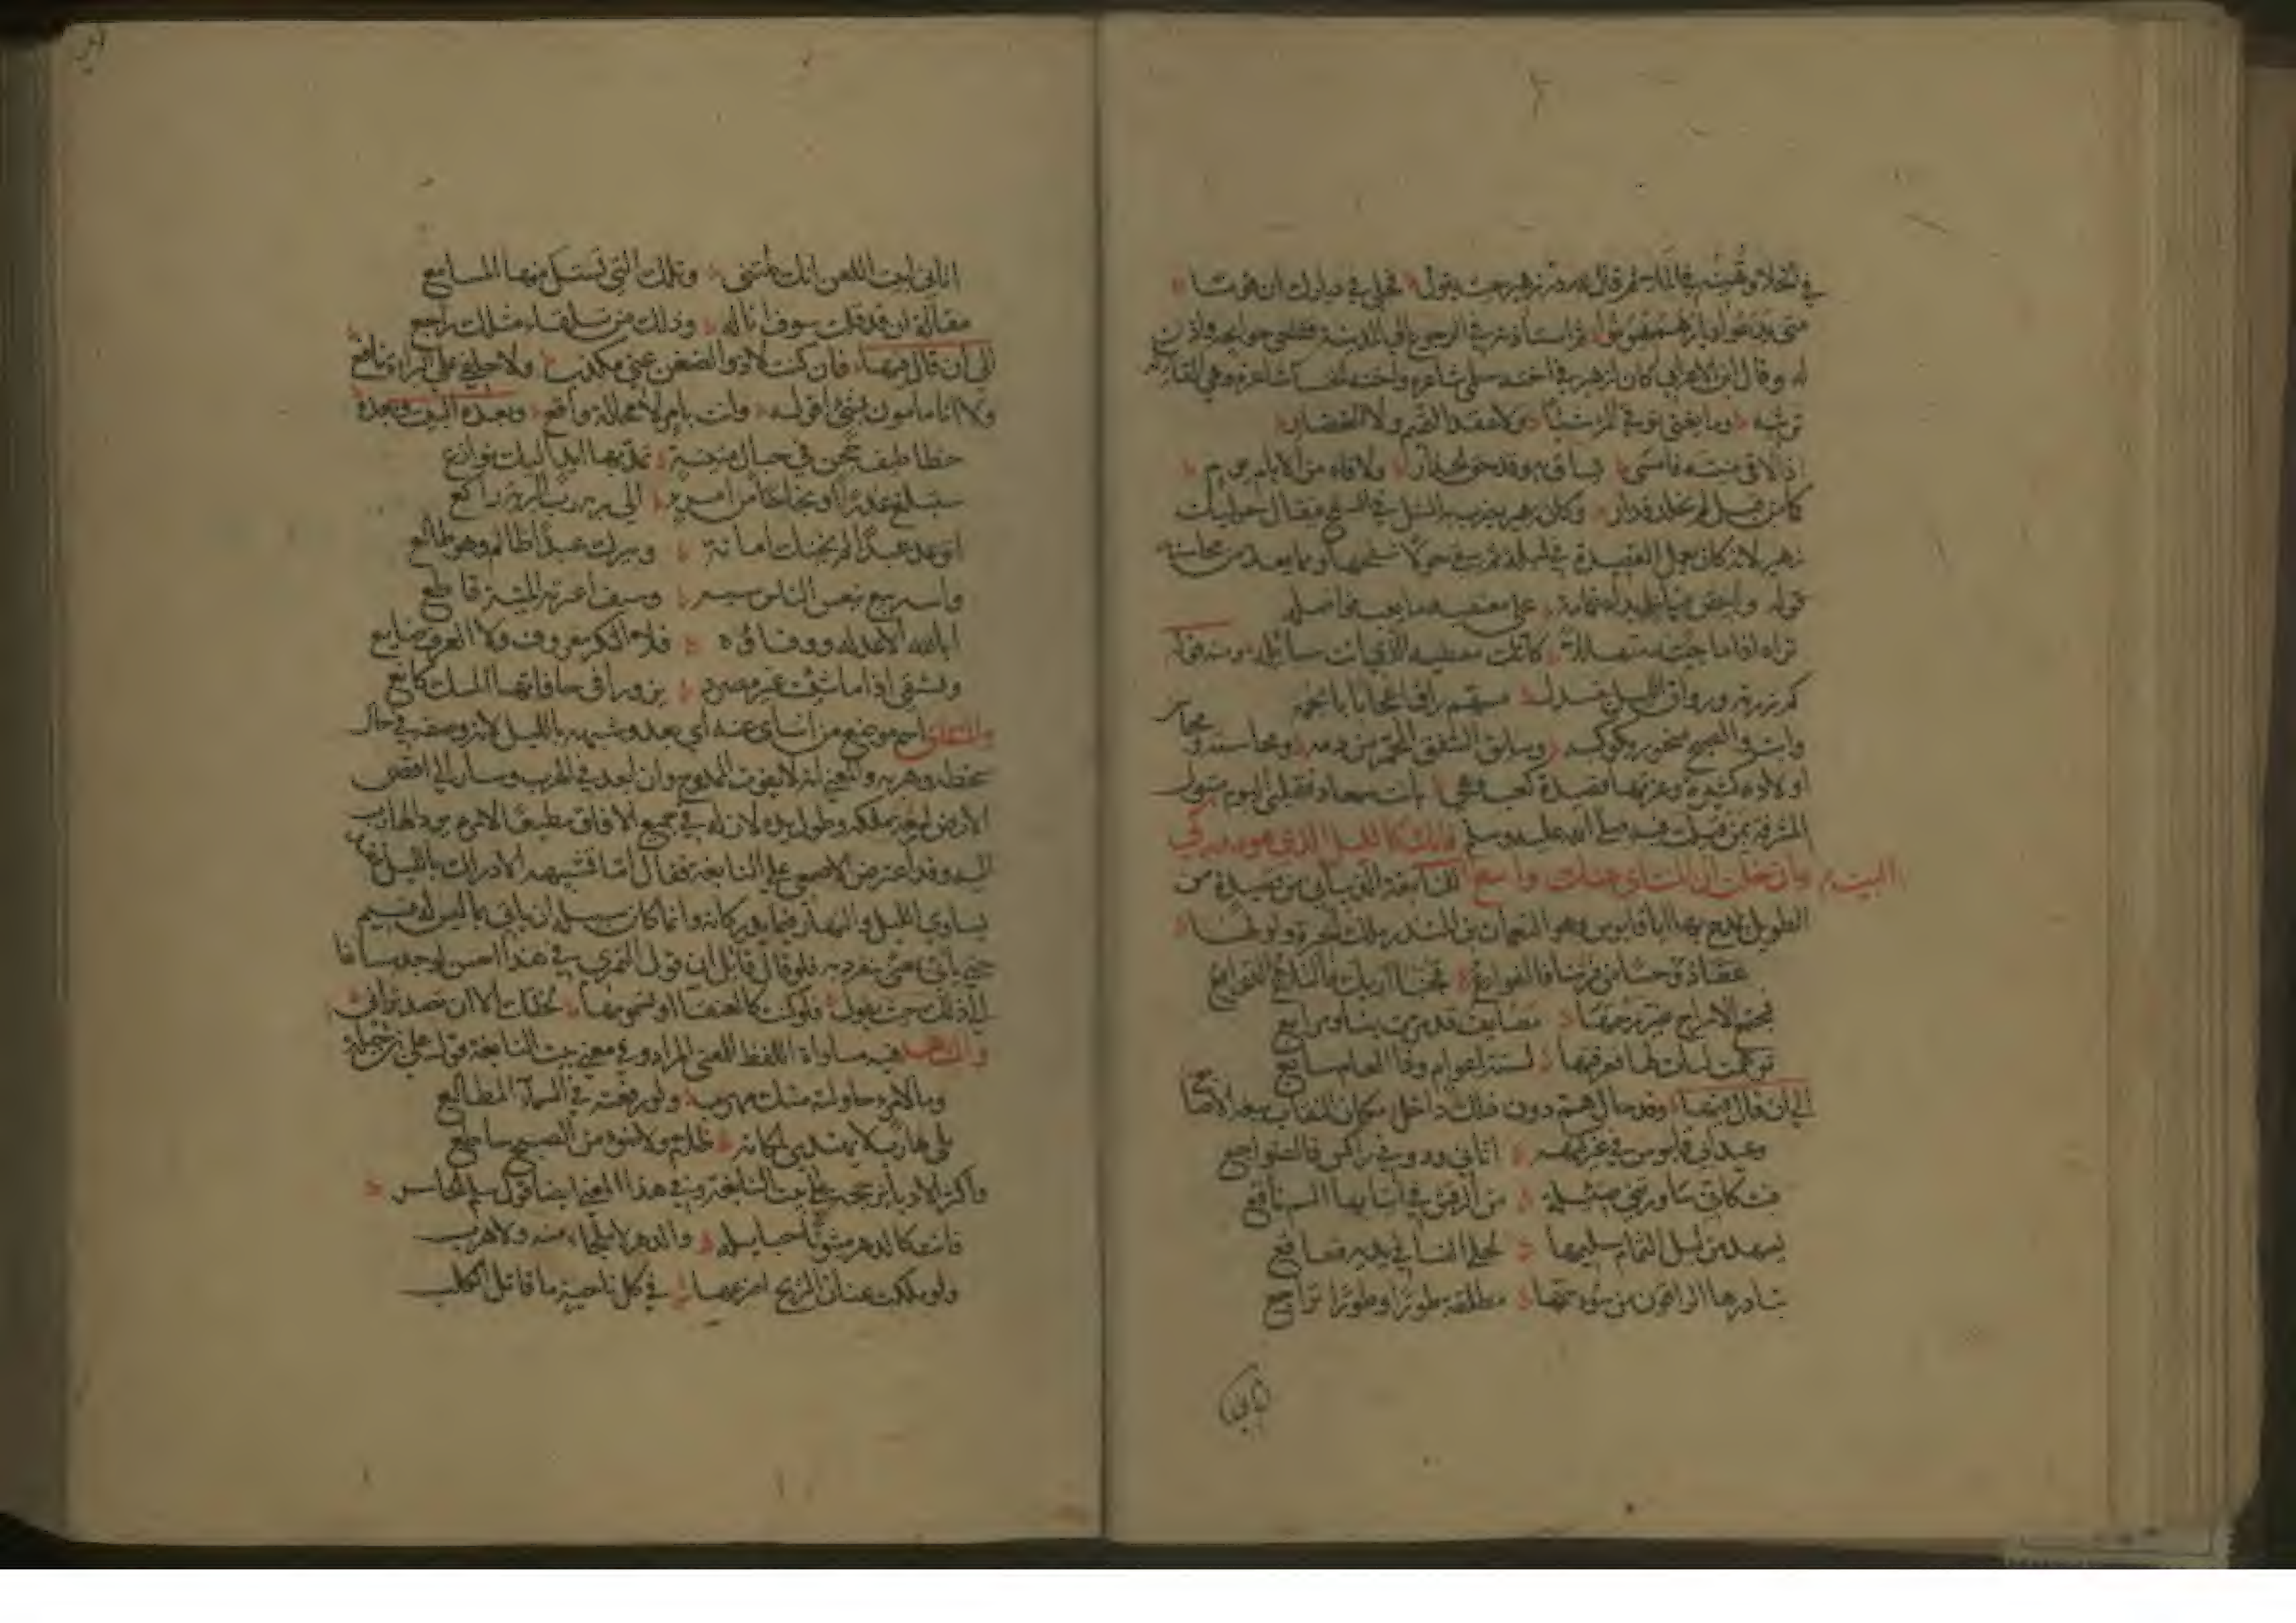 متى تدعوا ديارهم تقووا ثم استأذنه في الرجوع الى المدينة فقضى حوائجه واذن
له وقال ابن الاعرابي كان لزهير في اخته سلمى شاعرة واخته الخنساء شاعرة وهي القائلة
ترثيه وما يغني توقي المرء شيئا ولا عقد التميم ولا الغضار
اذا لاقى منيته فامسى يساق به وقد حق الحذار ولاقاه من الايام يوم
كما من قبل لم يخلد قدار وكان زهير يضرب به المثل في التنقيح فيقال حوليات
زهير لانه كان يعمل القصيدة في ليلة ثم يبقى حولا ينقحها ومما يعد من محاسنه
قوله وابيض فياض يداه غمامة على معتفيه ما تغب فواضله
تراه اذا ما جئته متهللا كانك معطيه الذي انت سائله ومنه قوله
كم زرته ورواق الليل منسدل مسهم راق اعجابا بانجمه
وابت والصبح منحور بكوكبه وسايق الشفق المحمر من دمه ومحاسنه ومحاسن
اولاده كثيرة وغرتها قصيدة كعب وهي بانت سعاد فقلبي اليوم متبول
المشرفة بمن قيلت فيه صلى الله عليه وسلم فانك كالليل الذي هو مدركي
وان خلت ان المنتأى عنك واسع البيت للنابغة الذبياني من قصيدة من
الطويل يمدح بها ابا قابوس وهو النعمان بن المنذر ملك الحيرة واولها
عفا ذو حسا من فرتنا فالفوارع فجنبا اريك فالتلاع الدوافع
فمجتمع الاشراج غير رسمها مصايف قد مرت بنا ومرابع
توهمت ايات لها فعرفتها لستة اعوام وذا العام سابع
الى ان قال فيها وقد حال هم دون ذلك داخل مكان الشغاف تبتغيه الاصابع
وعيد ابي قابوس في غير كنهه اتاني ودوني راكس فالضواجع
فبت كاني ساورتني ضئيلة من الرقش في انيابها السم ناقع
يسهد من ليل التمام سليمها لحلي النسا في يديه قعاقع
تناذرها الراقون من سوء سمها تطلقه طورا وطورا تراجع
اتاني
اتاني ابيت اللعن انك لمتني وتلك التي تستك منها المسامع
مقالة ان قد قلت سوف اناله وذلك من تلقاء مثلك راجع
الى ان قال فيها فان كنت لا ذو الضغن عني مكذب ولا حلفي على البراءة نافع
ولا انا مامون بشئ اقوله وانت بامر لا محالة واقع وبعده البيت وبعده
خطاطيف حجن في حبال متينة تمد بها ايد اليك نوازع
سيبلغ عذرا او نجاحا من امرئ الى ربه رب البرية راكع
اتوعد عبدا لم يخنك امانة ويترك عبد ظالم وهو ظالع
وانت ربيع ينعش الناس سيبه وسيف اعيرته المنية قاطع
ابى الله الا عدله ووفاؤه فلا النكر معروف ولا العرف ضايع
وتسقي اذا ما شئت غير مصرد بزوراء في حافاتها المسك كانع
والمنتأى اسم موضع من انتأى عنه اي بعد وشبهه بالليل لانه وصفه في حال
سخطه وهربه والمعنى انه لا يفوت الممدوح وان ابعد في الهرب وسار الى اقصى
الارض لسعة ملكه وطول يده لان له في جميع الافاق مطيعا لاوامره يرد الهارب
اليه وقد اعترض الاصمعي على النابغة فقال اما تشبيهه الادراك بالليل فقد
يساوي الليل والنهار فيما يدركانه وانما كان سبيله ان ياتي بما ليس له قسيم
حتى ياتي بمعنى ينفرد به فلو قال قائل ان قول النميري في هذا احسن لوجد مساغا
الى ذلك حيث يقول فلو كنت كالعنقاء او بسمومها لخلتك الا ان تصد تراني
والشاهد فيه مساواة اللفظ للمعنى المراد وفي معنى بيت النابغة قول علي بن جبلة
وما لامرئ حاولته منك مهرب ولو رفعته في السماء المطالع
بلى هارب لا يهتدي لمكانه ظلام ولا ضوء من الصبح ساطع
واكثر الادباء يرجحه على بيت النابغة وفي هذا المعنى ايضا قول سلم الخاسر
فانت كالدهر مبثوثا حبايله والدهر لا ملجأ منه ولا هرب
ولو ملكت عنان الريح اصرفها في كل ناحية ما فاتك الطلب